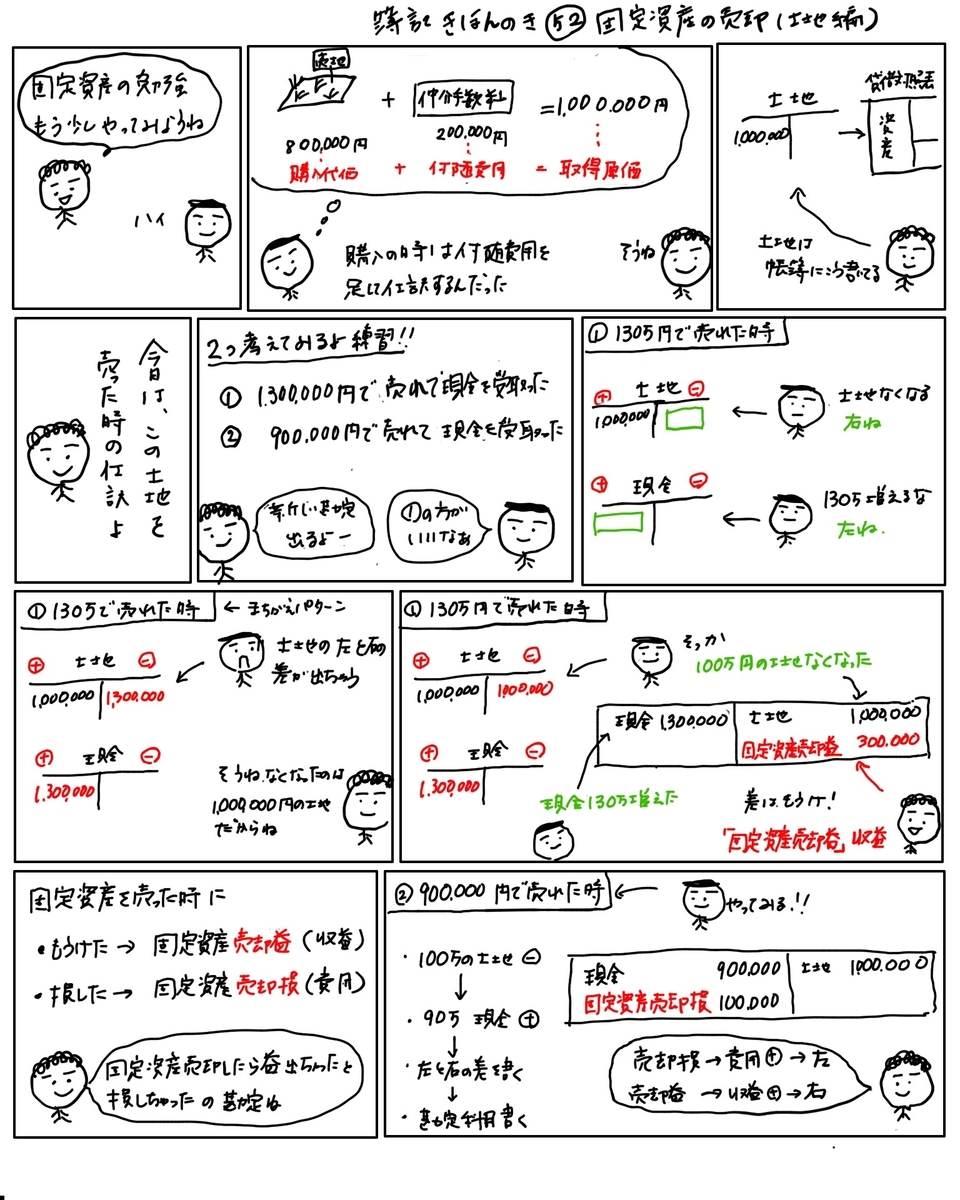 簿記きほんのき52 固定資産の売却(土地編)
固定資産の勉強
もう少しやってみようね
ハイ
売地
+ 仲介手数料 =1,000.000円
800,000円 200,000円
購入代価 + 付随費用 = 取得原価
購入の時は付随費用を
足して仕訳するんだった
そうね
土地
1,000,000
→
貸借対照表
資産
土地は
帳簿にこう書いてる
今日は、この土地を
売った時の仕訳よ
2つ考えてみるよ練習!!
① 1.300,000円で売れて現金を受取った
② 900.000円で売れて現金を受取った
新しい勘定
出るよー
①の方が
いいなぁ
① 130万円で売れた時
+ 土地 −
1,000,000
土地なくなる
右ね
+ 現金 −
130万増えるな
左ね.
① 130万で売れた時 ← まちがえパターン
+ 土地 −
1,000,000 1,300,000
土地の左と右の
差が出ちゃう
+ 現金 −
1.300,000
そうね、なくなったのは
1,000,000円の土地
だからね
① 130万円で売れた時
+ 土地 −
1,000,000 1,000,000
そっか
100万円の土地なくなった
現金 1,300,000 土地 1,000,000
固定資産売却益 300.000
+ 現金 −
1.300,000
現金130万増えた
差は、もうけ!
「固定資産売却益」収益
固定資産を売った時に
・もうけた → 固定資産売却益(収益)
・損した → 固定資産売却損(費用)
固定資産売却したら益出ちゃったと
損しちゃったの勘定ね
② 900.000円で売れた時
やってみる!!
・100万の土地 ⊖
↓
・90万 現金 ⊕
↓
・左と右の差を書く
↓
・勘定科目書く
現金 900.000 土地 1,000.000
固定資産売却損 100,000
売却損 → 費用⊕ → 左
売却益 → 収益⊕ → 右